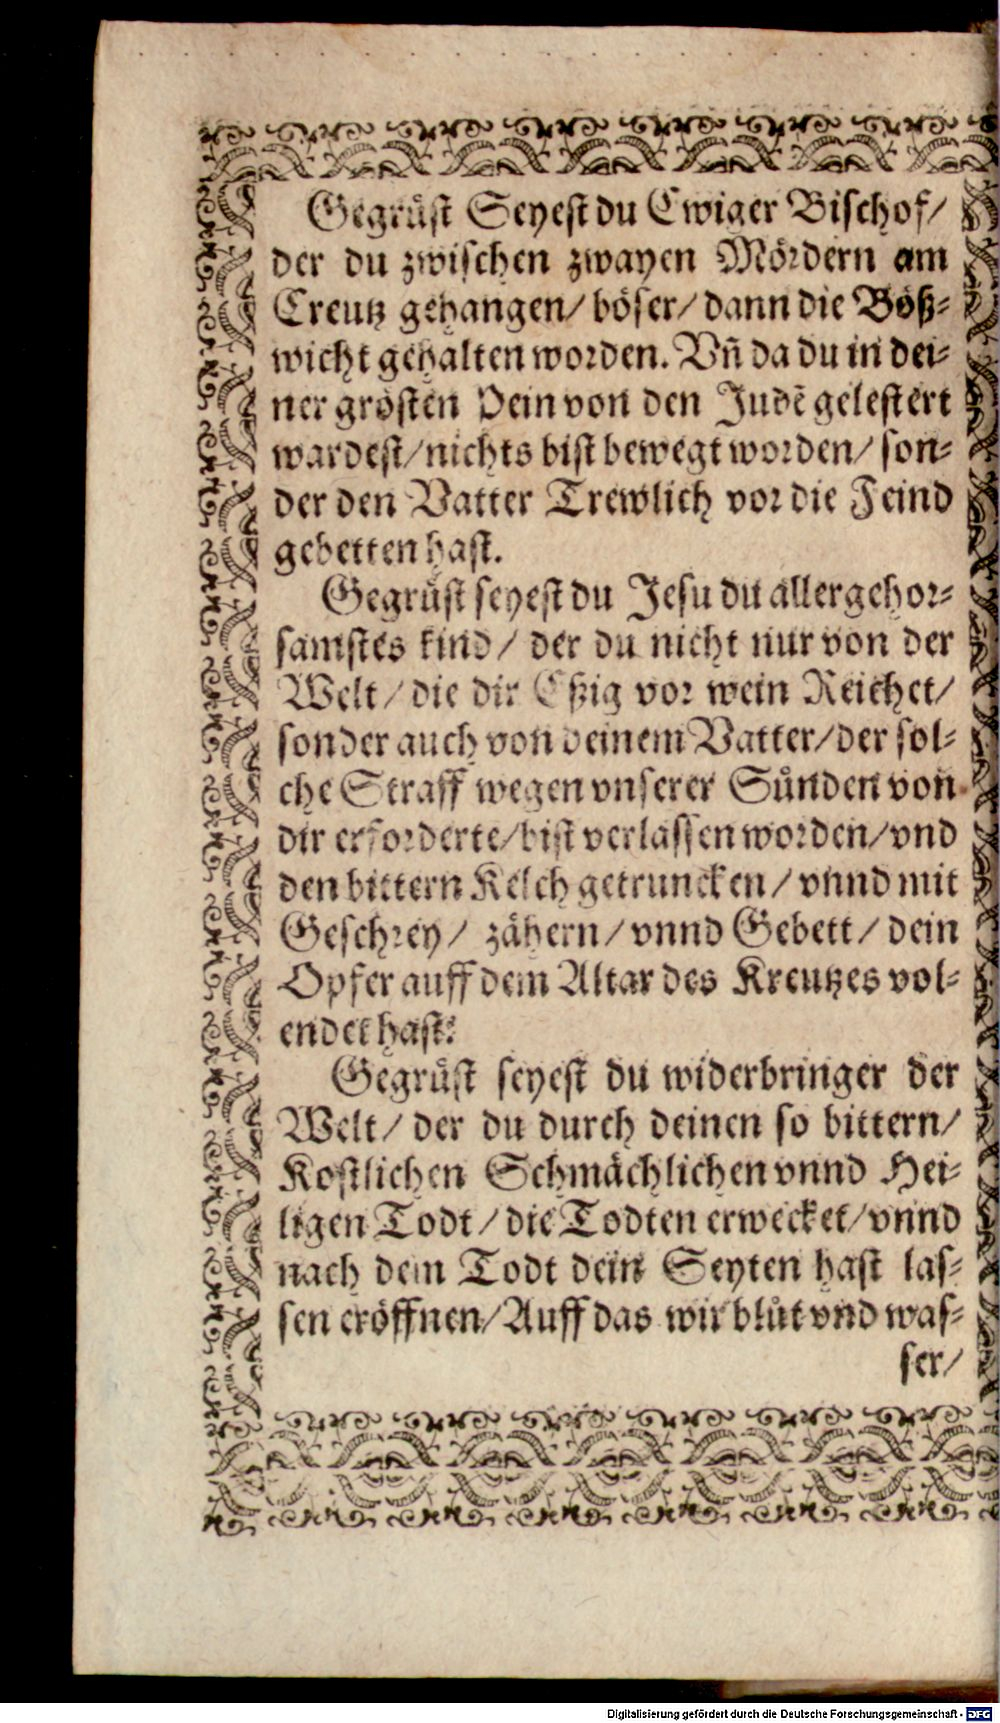 Gegrüst Seyest du Ewiger Bischof/
der du zwischen zwayen Mördern am
Creutz gehangen/ böser/ dann die Böß-
wicht gehalten worden. Vñ da du in dei-
ner grösten Pein von den Judẽ gelestert
wardest/ nichts bist bewegt worden/ son-
der den Vatter Trewlich vor die Feind
gebetten hast.
Gegrüst seyest du Jesu du allergehor-
samstes kind/ der du nicht nur von der
Welt/ die dir Eßig vor wein Reichet/
sonder auch von deinem Vatter/ der sol-
che Straff wegen vnserer Sünden von
dir erforderte/ bist verlassen worden/ vnd
den bittern Kelch getruncken/ vnnd mit
Geschrey/ zähern/ vnnd Gebett/ dein
Opfer auff dem Altar des Kreutzes vol-
endet hast:
Gegrüst seyest du widerbringer der
Welt/ der du durch deinen so bittern/
Kostlichen Schmächlichen vnnd Hei-
ligen Todt/ die Todten erwecket/ vnnd
nach dem Todt dein Seyten hast las-
sen eröffnen/ Auff das wir blůt vnd was-
ser/
Digitalisierung gefördert durch die Deutsche Forschungsgemeinschaft - DFG